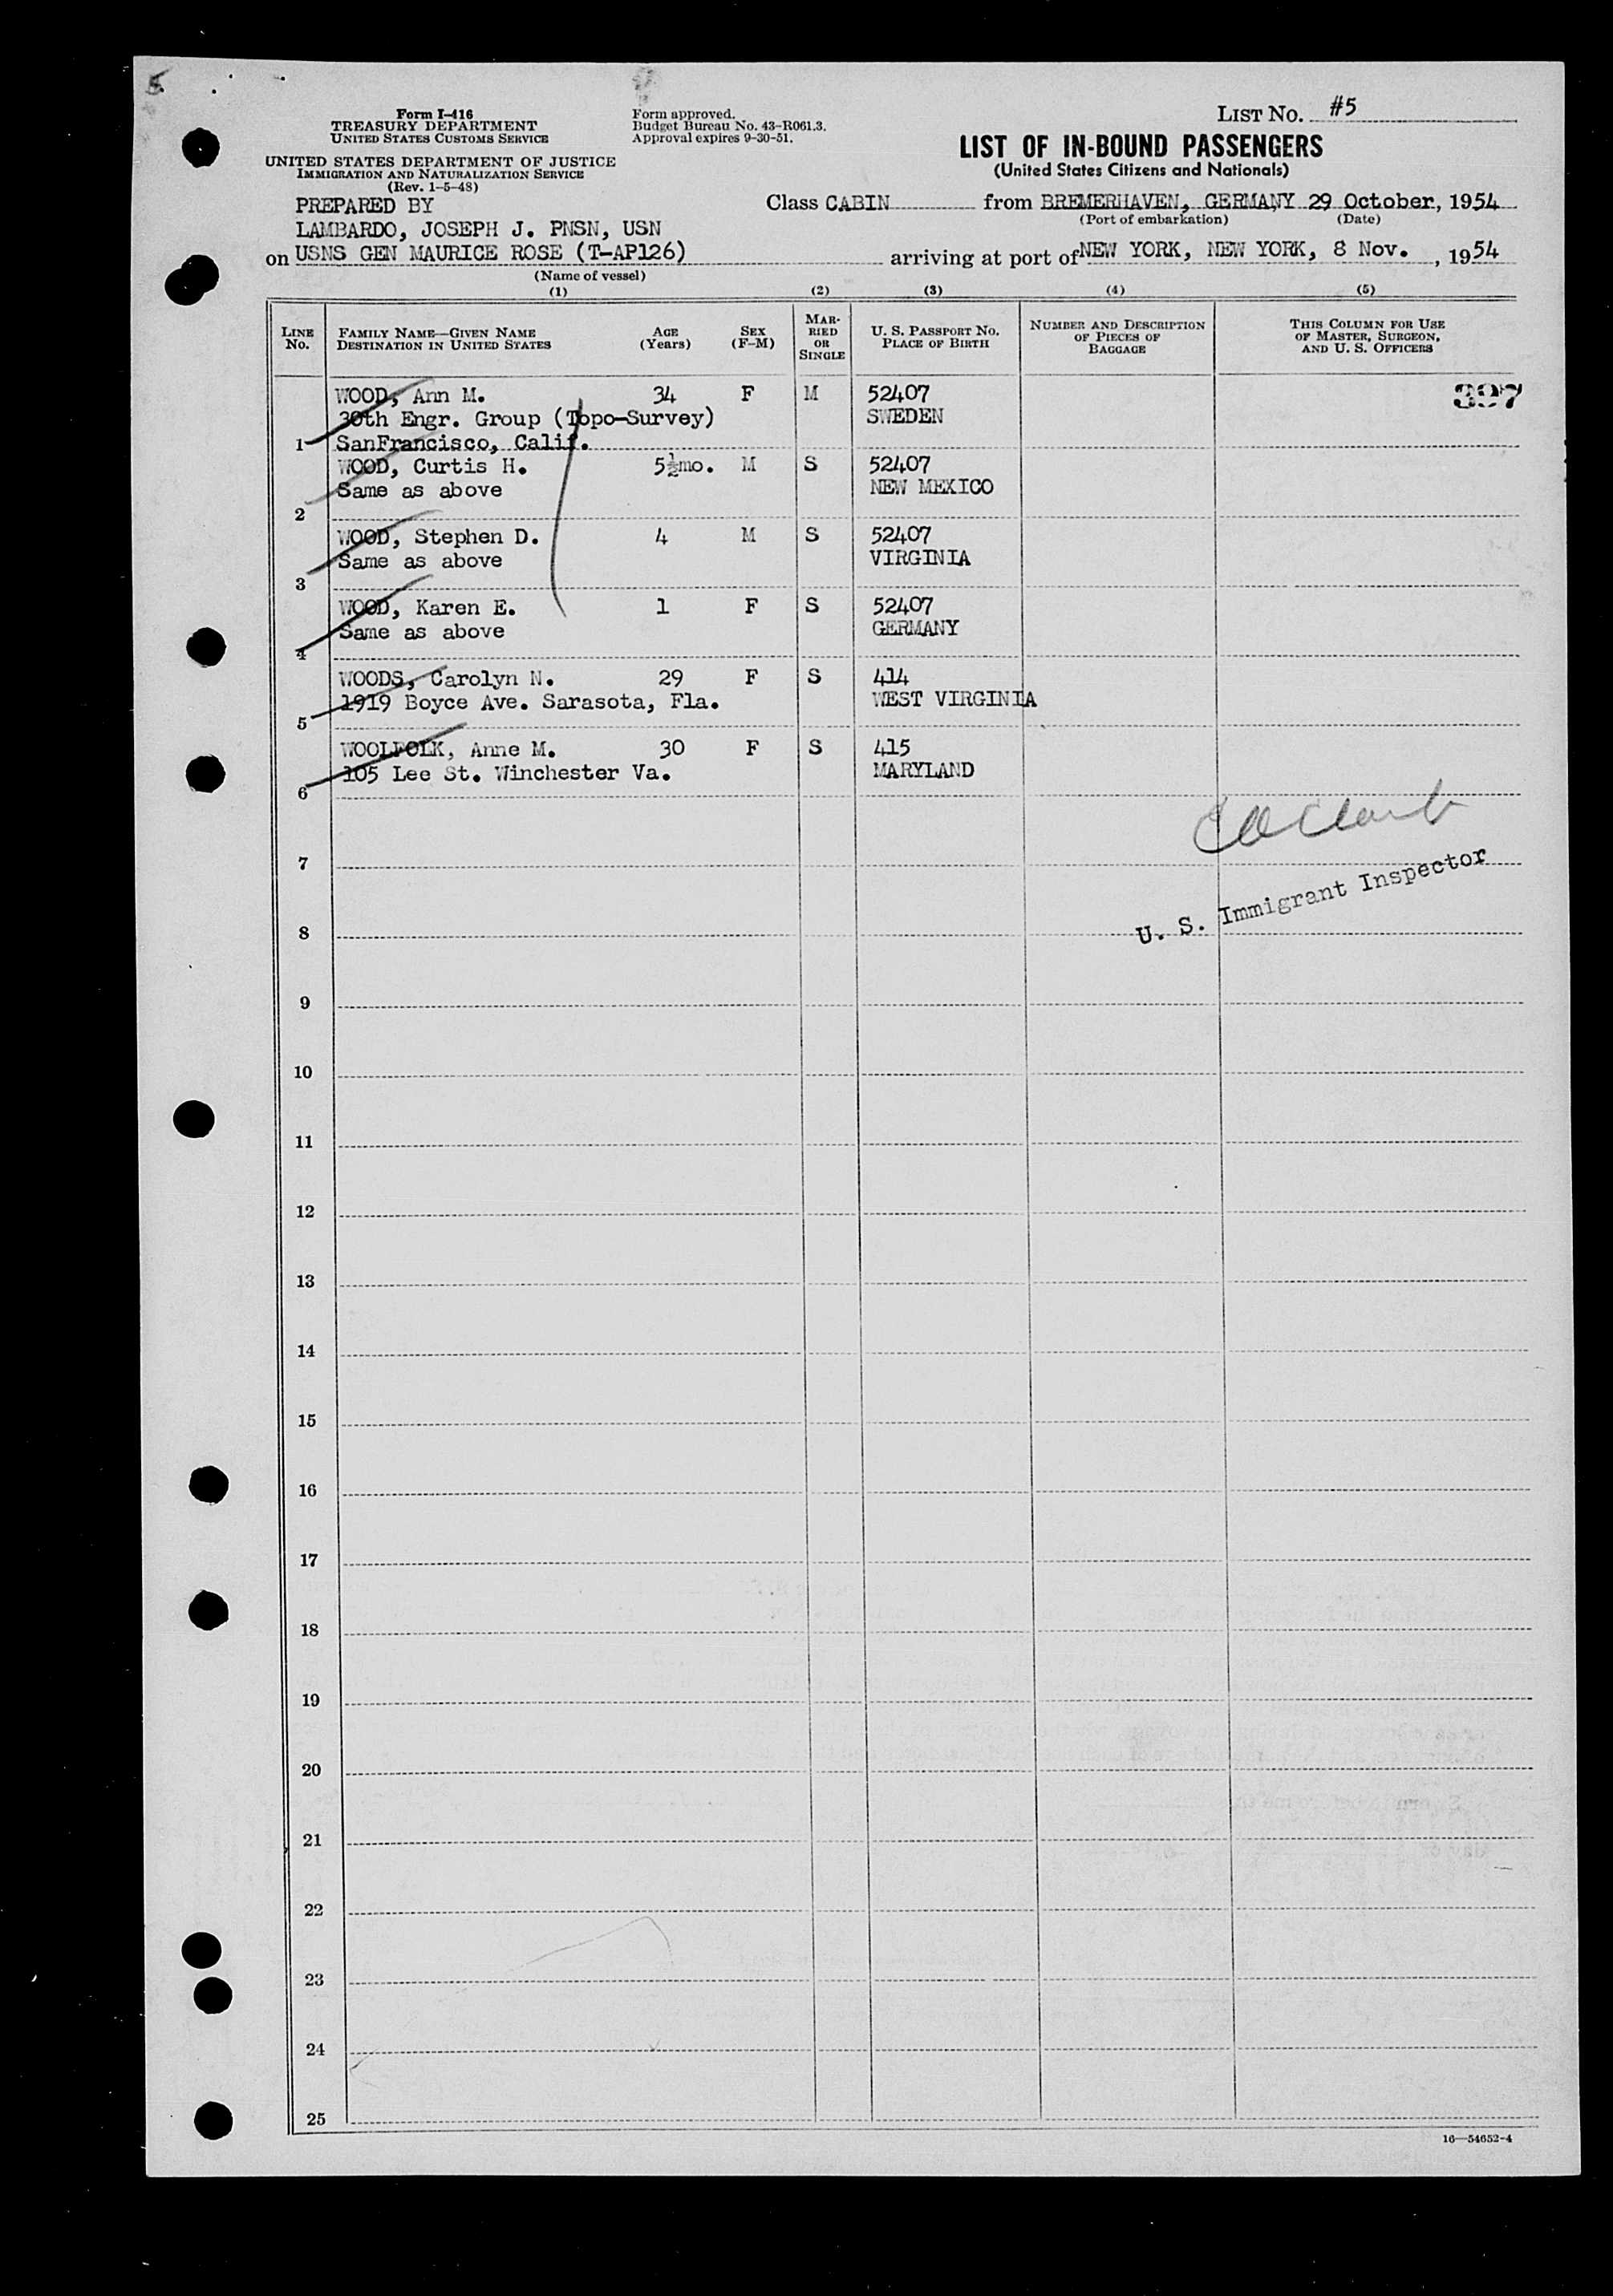 5
Form I-416
TREASURY DEPARTMENT
UNITED STATES CUSTOMS SERVICE
Form approved.
Budget Bureau No. 43-R061.3.
Approval expires 9-30-51.
LIST NO. #5
UNITED STATES DEPARTMENT OF JUSTICE
IMMIGRATION AND NATURALIZATION SERVICE
(Rev. 1-5-48)
LIST OF IN-BOUND PASSENGERS
(United States Citizens and Nationals)
PREPARED BY
LAMBARDO, JOSEPH J. PNSN, USN
Class CABIN from BREMERHAVEN, GERMANY 29 October, 1954
(Port of embarkation) (Date)
on USNS GEN MAURICE ROSE (T-AP126) arriving at port of NEW YORK, NEW YORK, 8 Nov. , 1954
(Name of vessel)
(1) (2) (3) (4) (5)
LINE NO.
FAMILY NAME—GIVEN NAME
DESTINATION IN UNITED STATES
AGE (Years)
SEX (F-M)
MARRIED OR SINGLE
U. S. PASSPORT NO.
PLACE OF BIRTH
NUMBER AND DESCRIPTION OF PIECES OF BAGGAGE
THIS COLUMN FOR USE OF MASTER, SURGEON, AND U. S. OFFICERS
WOOD, Ann M. 34 F M 52407 397
30th Engr. Group (Topo-Survey) SWEDEN
1 SanFrancisco, Calif.
WOOD, Curtis H. 5½mo. M S 52407
Same as above NEW MEXICO
2
WOOD, Stephen D. 4 M S 52407
Same as above VIRGINIA
3
WOOD, Karen E. 1 F S 52407
Same as above GERMANY
4
WOODS, Carolyn N. 29 F S 414
1919 Boyce Ave. Sarasota, Fla. WEST VIRGINIA
5
WOOLFOLK, Anne M. 30 F S 415
105 Lee St. Winchester Va. MARYLAND
6
7
U. S. Immigrant Inspector
8
9
10
11
12
13
14
15
16
17
18
19
20
21
22
23
24
25
16—54652-4